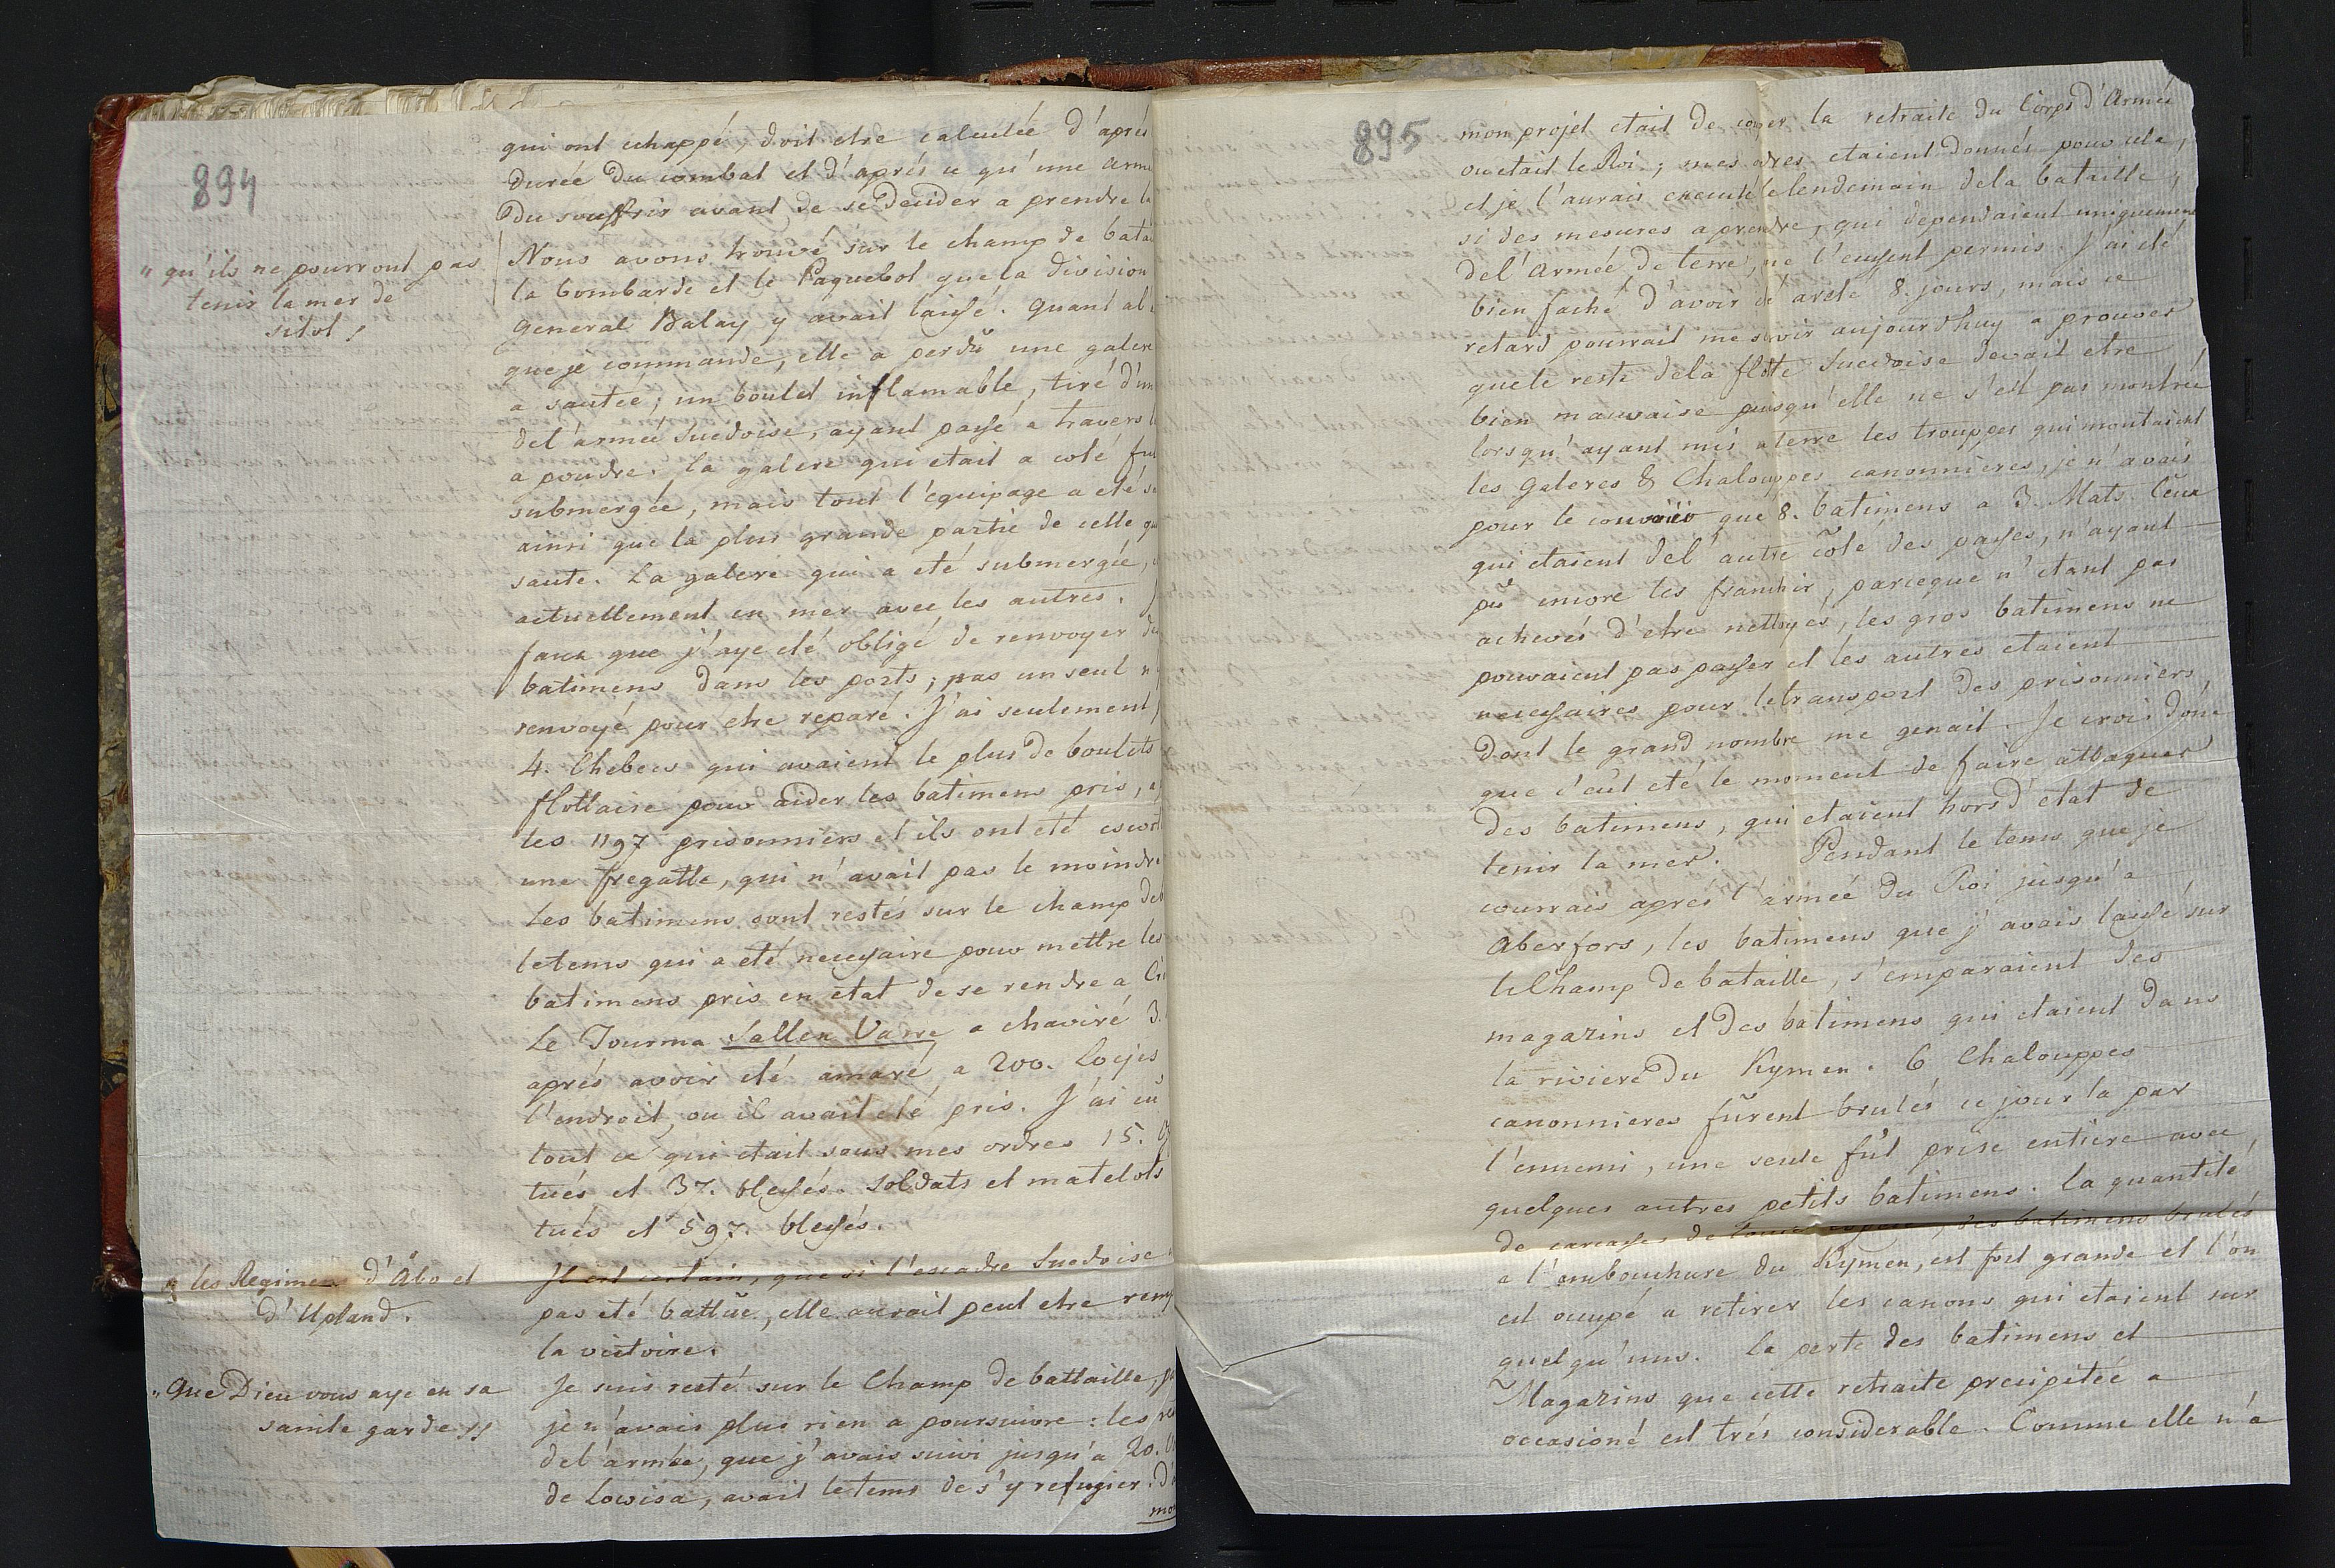 894
"qu'ils ne pourront pas
tenir la mer de
sitot,
qui ont echappé, doit etre calculée d'aprés
durée du combat et d'aprés ce qu'une arme
du souffrir avant de se decider a prendre la
Nous avons trouvé sur le champ de batai
la bombarde et le Paquebot que la division
general Balay y avait laissé. Quant al'
que je commande, elle a perdu une galere
a sautée; un boulet inflamable, tiré d'un
del'armeé Suedoise, ayant passé a travers l
a poudre. La galere qui etait a coté fut
submergée, mais tout l'equipage a eté s
ainsi que la plus grande partie de celle qu
saute. La galere qui a eté submergée,
actuellement en mer avec les autres.
faux que j'aye eté obligé de renvoyer de
batimens dans les ports; pas un seul n
renvoyé pour etre reparé. J'ai seulement
4. Chebecs qui avaient le plus de boulets
flottaire pour aider les batimens pris, a
les 1197 prisonniers et ils ont eté escort
une fregatte, qui n'avait pas le moindre
Les batimens sont restés sur le champ de
letems qui a eté necessaire pour mettre les
batimens pris en etat de se rendre a Cr
Le Tourma Sallen Varre a chaviré 3.
aprés avoir eté amaré a 200. Loyses
l'endroit, ou il avait eté pris. J'ai eu
tout ce qui etait sous mes ordres 15. Of
tués et 37. blessés. Soldats et matelots
tués et 597. blessés.
a les Regimens d'Åbo et
d'Upland.
Il est certain, que si l'escadre Suedoise
pas eté battüe, elle aurait peut etre remp
la victoire.
"Que Dieu vous aye en sa
sainte garde!!
Je suis resté sur le Champ de battaille, p
je n'avais plus rien a poursuivre: les re
del'armée, que j'avais suivi jusqu'a 20. V
de Lowisa, avait letems de s'y refugier. D'a
mon
895
mon projet etait de couper la retraite du Corps d'Armeé
ou etait le Roi; mes ordres etaient donnés pour cela,
et je l'aurais executé le lendemain dela bataille,
si des mesures a prendre, qui dependaient uniquement
del'Armeé de terre, ne l'eussent permis. J'ai eté
bien faché d'avoir eté areté 8. jours, mais ce
retard pourrait me servir aujourdhuy a prouver
que le reste dela flôte Suedoise devait etre
bien mauvaise puisqu'elle ne s'est pas montrée
lorsqu'ayant mis a terre les trouppes qui montaient
les Galeres & Chalouppes canonnieres, je n'avais
pour le convoier que 8. batimens a 3. Mats. Ceux
qui etaient del'autre côté des passes, n'ayant
pû encore les franchir, parceque n'etant pas
achevés d'etre nettoyés, les gros batimens ne
pouvaient pas passer et les autres etaient
necessaires pour letransport des prisonniers,
dont le grand nombre me genait. Je crois donc
que c'eut eté, le moment de faire attaquer
des batimens, qui etaient hors d'etat de
tenir la mer. Pendant le tems que je
courrais aprés l'armeé du Roi jusqu'a
Aberfors, les batimens que j'avais laissé sur
le Champ de bataille, s'emparaient des
magazins et des batimens qui etaient dans
la riviere du Kymen. 6 Chalouppes
canonnieres fûrent brulés ce jour la par
l'ennemi, une seule fût prise entiere avec
quelques autres petits batimens. La quantité
de carcasses de toute espece, des batimens brulés
a l'embouchure du Kymen, est fort grande et l'on
est ocupé a retirer les canons qui etaient sur
quelqu'uns. La perte des batimens et
Magazins que cette retraite precipitée a
occasioné est trés considerable. Comme elle n'a